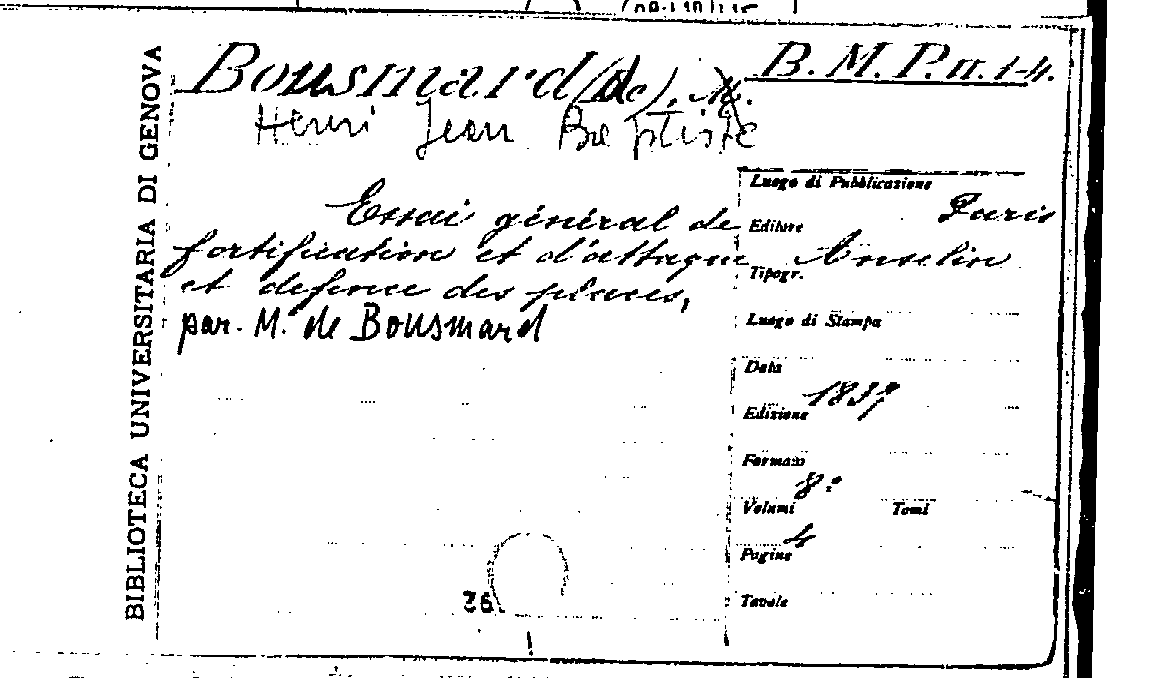 BIBLIOTECA UNIVERSITARIA DI GENOVA
Bousmard (de).
B. M. P. n. 1-4.
Henri Jean Baptiste
Essai général de
fortification et d'attaque
et defence des places,
par. M. de Bousmard
Luogo di Pubblicazione
Paris
Editore
Anselin
Tipogr.
Luogo di Stampa
Data
1837
Edizione
Formato
8º
Volumi
Tomi
4
Pagine
Tavole
36